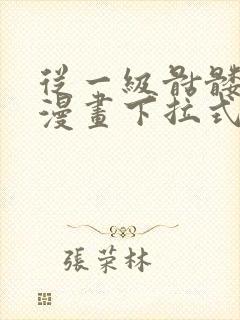 從一級骷髏
漫畫下拉式
張荣林